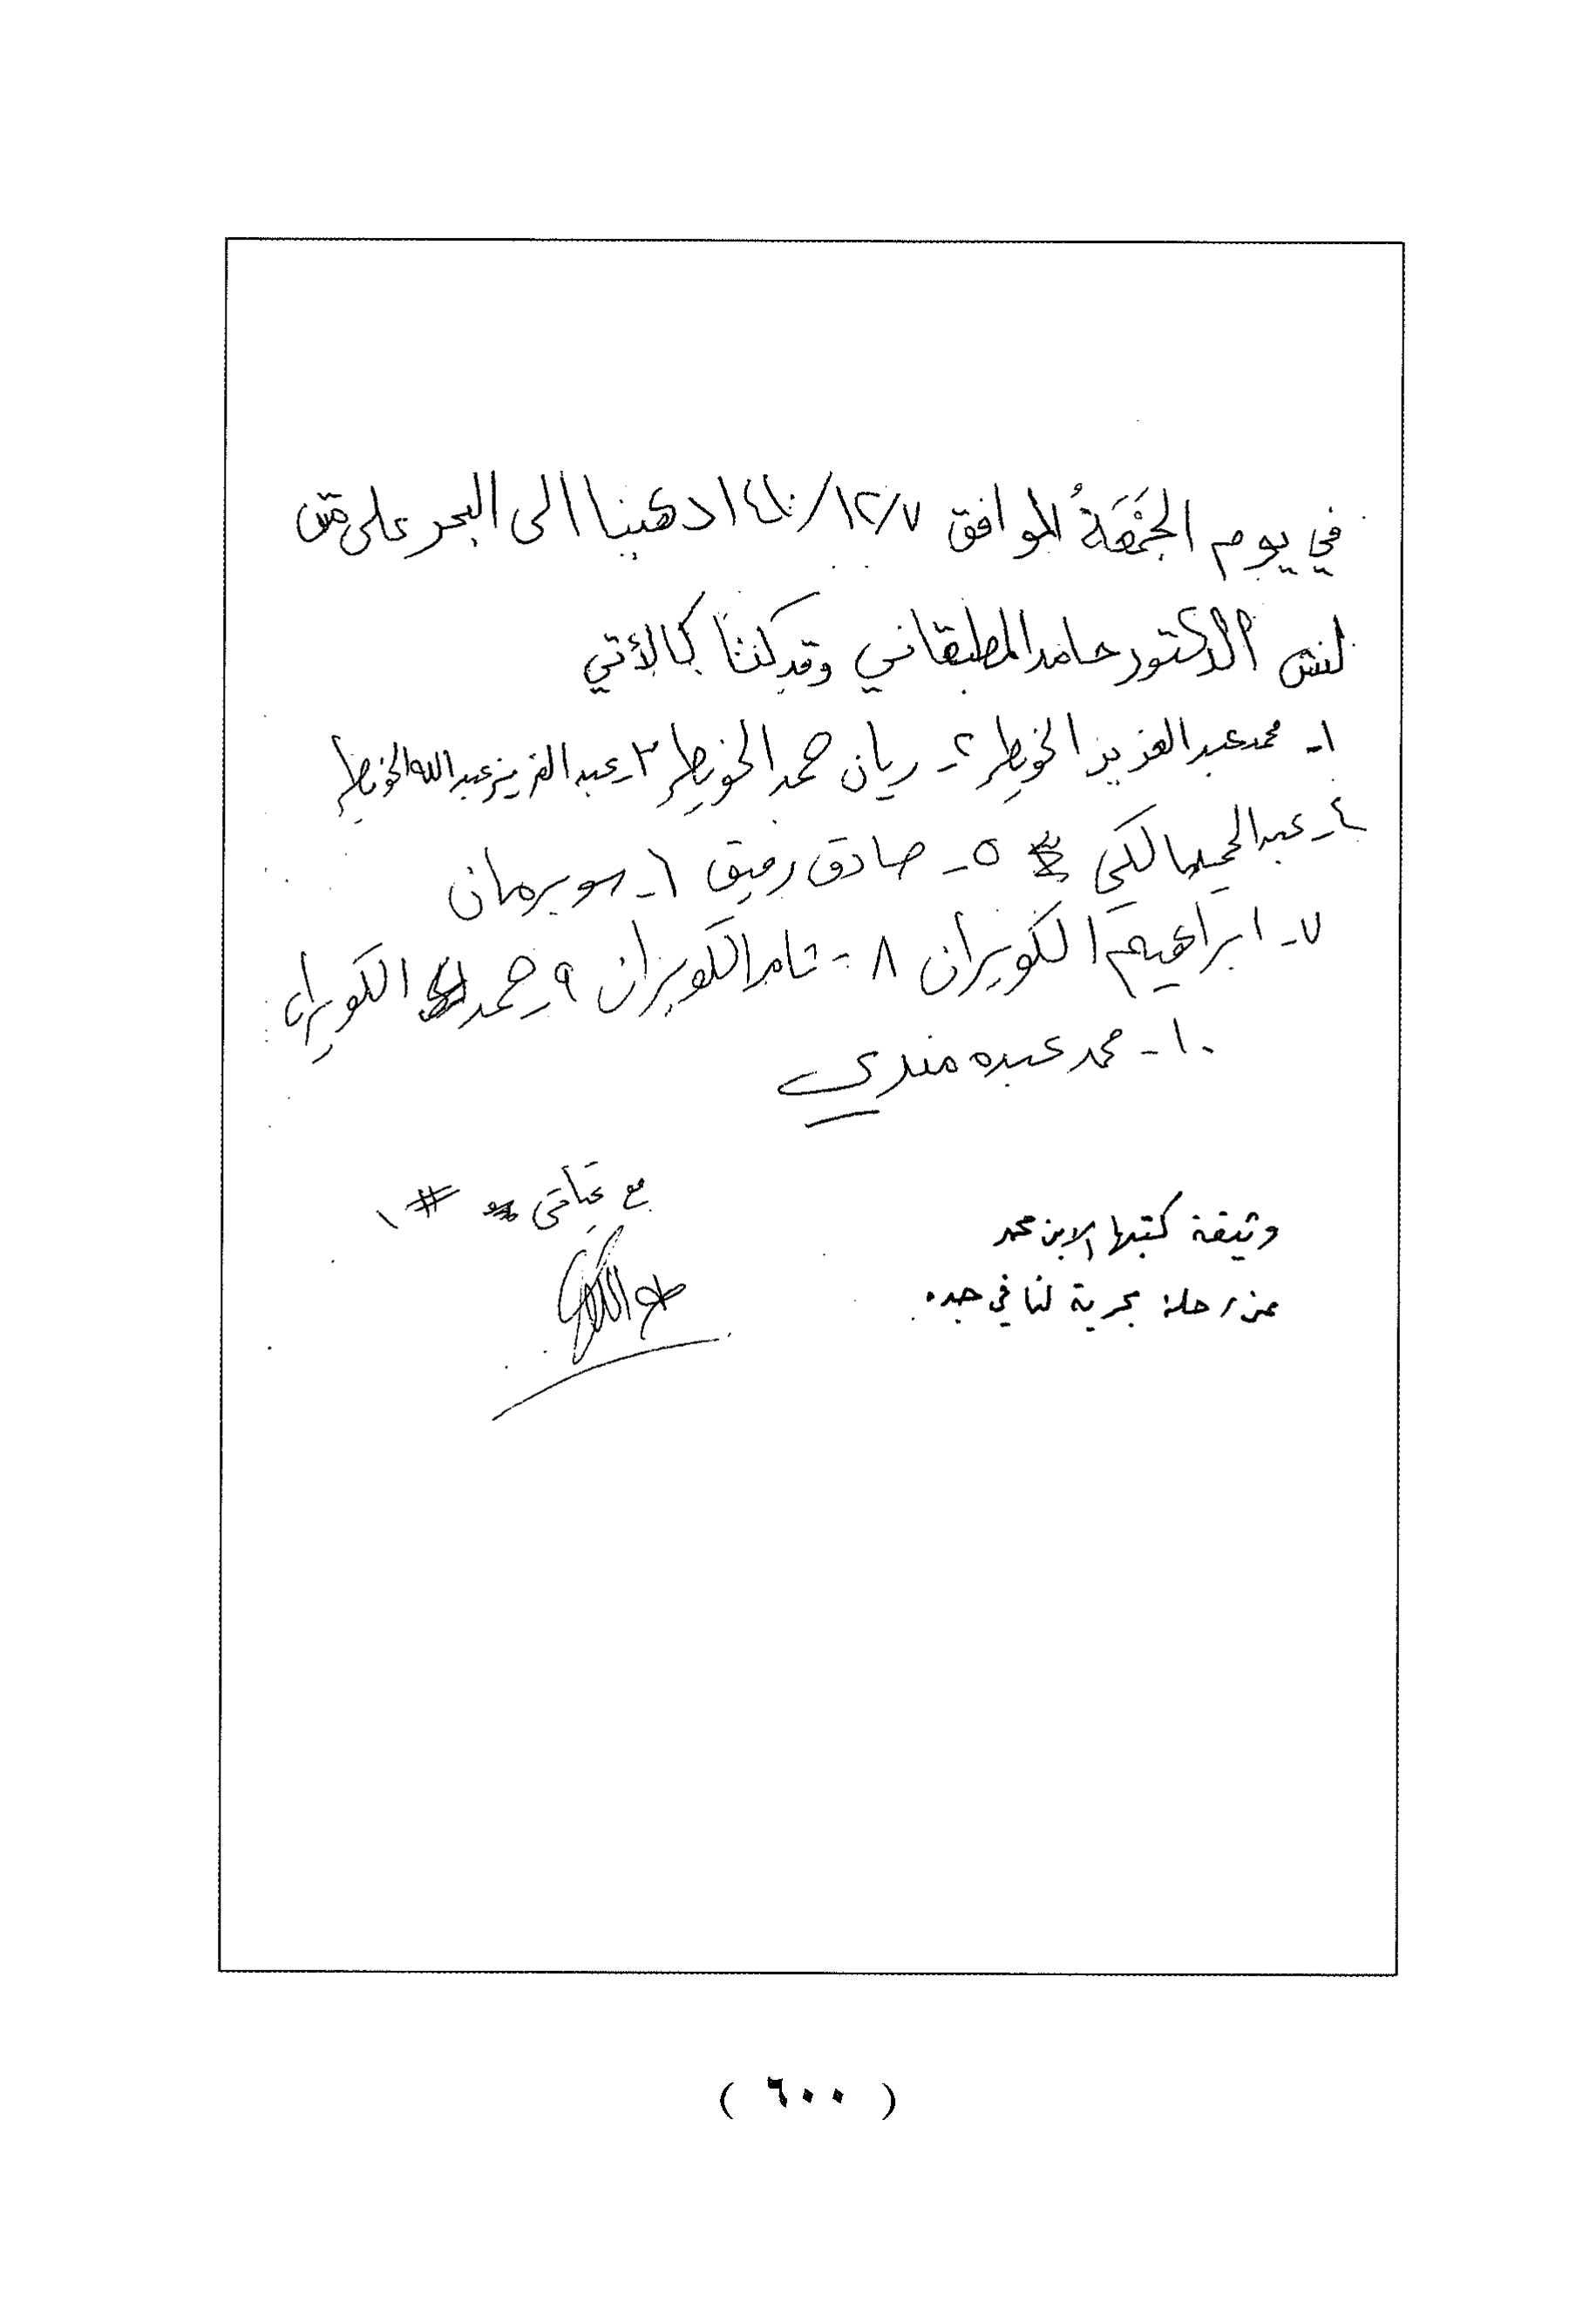 في يوم الجُمْعَةُ الموافق ١٤١٠/١٢/٧ ذهبنا الى البحر على متن
لنش الدكتور حامد المطبقاني وقد كننا كالأتي
١- محمد عبد العزيز الخويطر ٢- ريان حمد الخويطر ٣- عبد العزيز عبد الله الخويطر
٤- عبد الحميد مالكي ٥- صادق رفيق ٦- سوبرمان
٧- ابراهيم الكويران ٨- ثامر الكويران ٩- حمد الكويران
١٠- محمد عبده مندري
مع تحياتي
وثيقة كتبها الابن محمد
عن رحلة بحرية لنا في جده.
( ٦٠٠ )